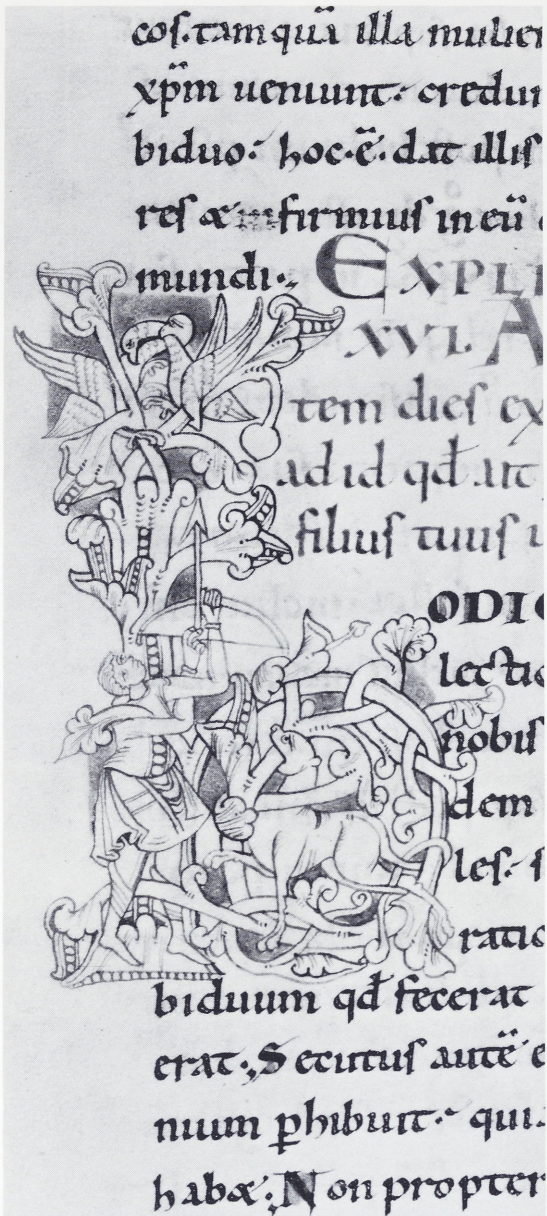 cos. tam quā illa mulier
xp̄m ueniunt. credun
biduo. hoc. ē. dat illis
res & infirmius in eū
mundi. EXPLI
XVI. A
tem dies ex
ad id qđ ait
filius tuus
ODIE
lectio
nobis
dem
les. s
ratio
biduum qđ fecerat
erat. Secutus autē e
nium phibuit. qui
habæ. Non propter